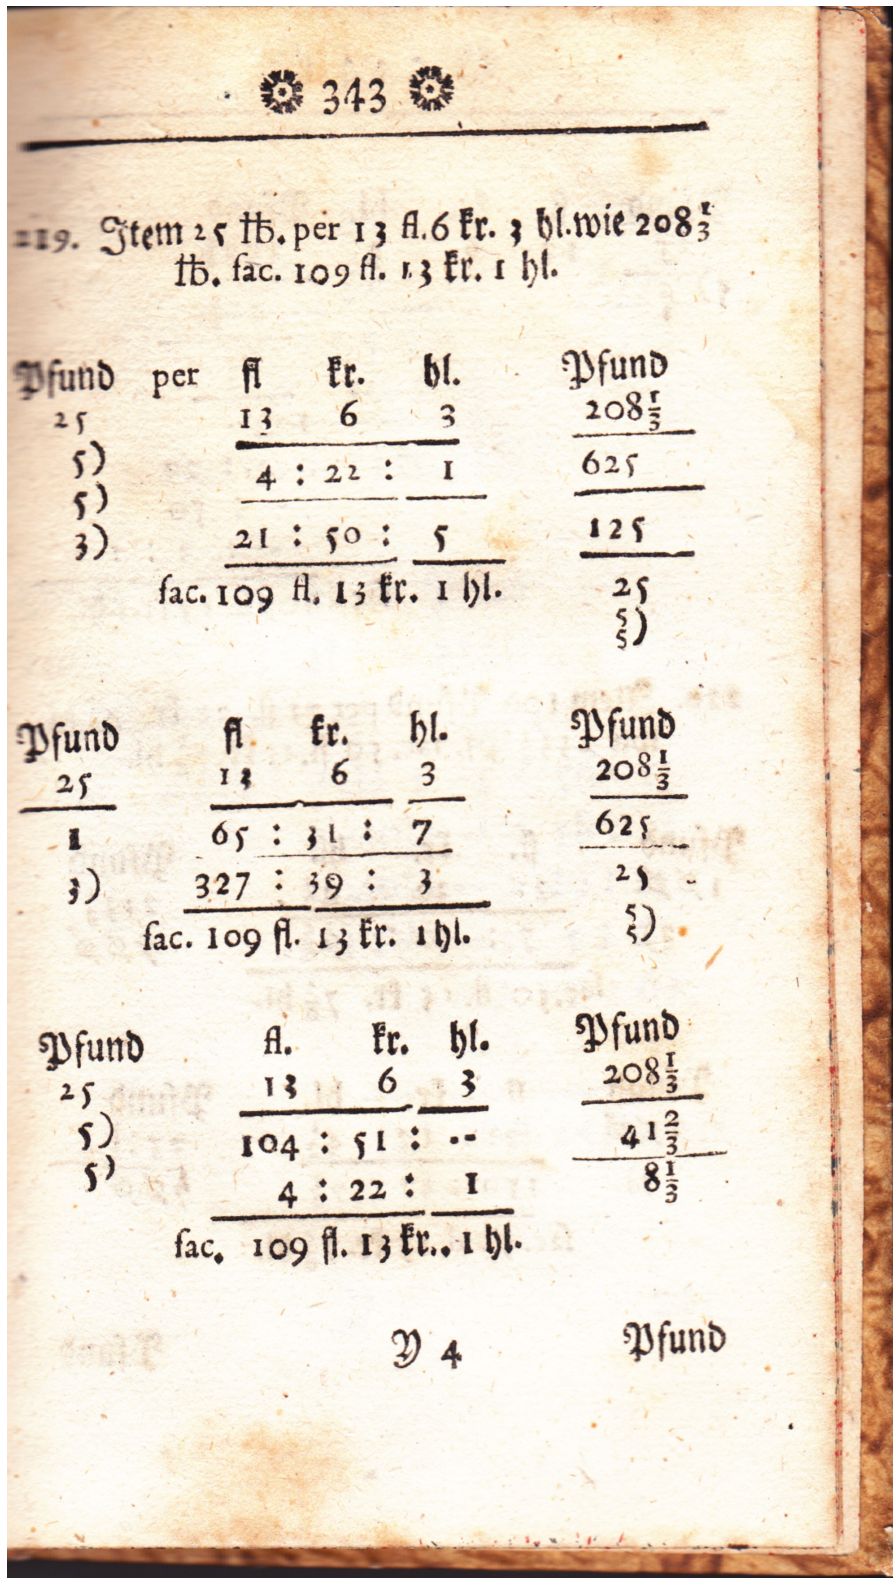 343
219. Item 25 ℔. per 13 fl. 6 kr. 3 hl. wie 208 1/3
℔. fac. 109 fl. 13 kr. 1 hl.
Pfund per fl kr. hl. Pfund
25 13 6 3 208 1/3
5) 4 : 22 : 1 625
5)
3) 21 : 50 : 5 125
fac. 109 fl. 13 kr. 1 hl. 25
5
5)
Pfund fl kr. hl. Pfund
25 13 6 3 208 1/3
1 65 : 31 : 7 625
3) 327 : 39 : 3 25
fac. 109 fl. 13 kr. 1 hl. 5
5)
Pfund fl. kr. hl. Pfund
25 13 6 3 208 1/3
5) 104 : 51 : -- 41 2/3
5) 4 : 22 : 1 8 1/3
fac. 109 fl. 13 kr.. 1 hl.
Y 4 Pfund